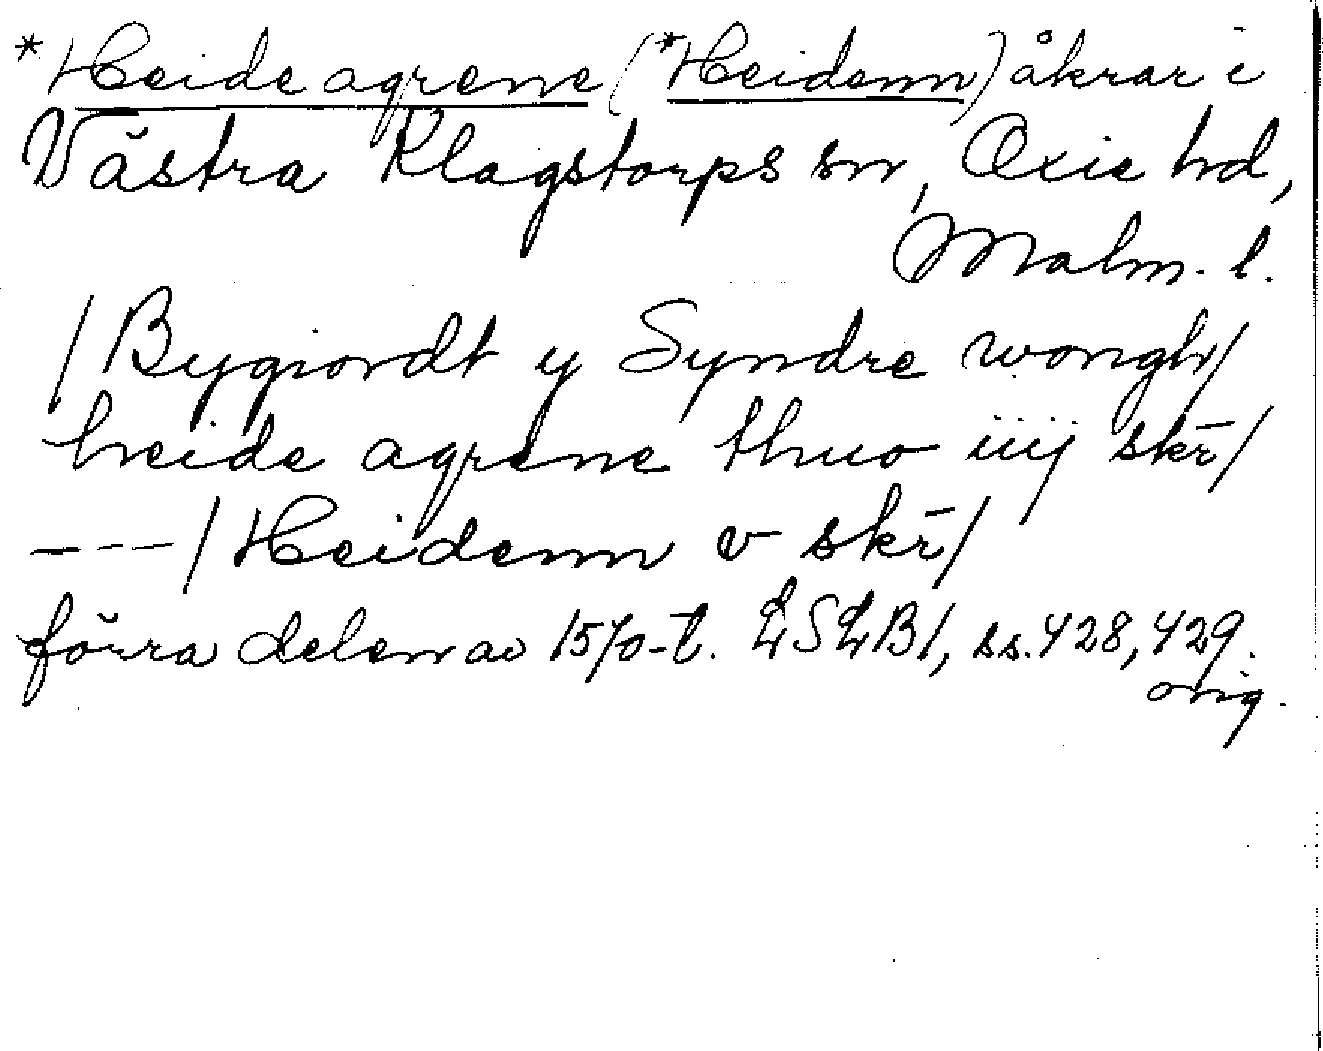 *Heide agrene (*Heidenn) åkrar i
Västra Klagstorps sn, Oxie hd,
Malm. l.
/Bygiordt y Syndre wongh/
heide agrene thuo iiij skr̄/
---/Heidenn v skr̄/
förra delen av 1570-t. LSLB1, ss. 428, 429.
orig.